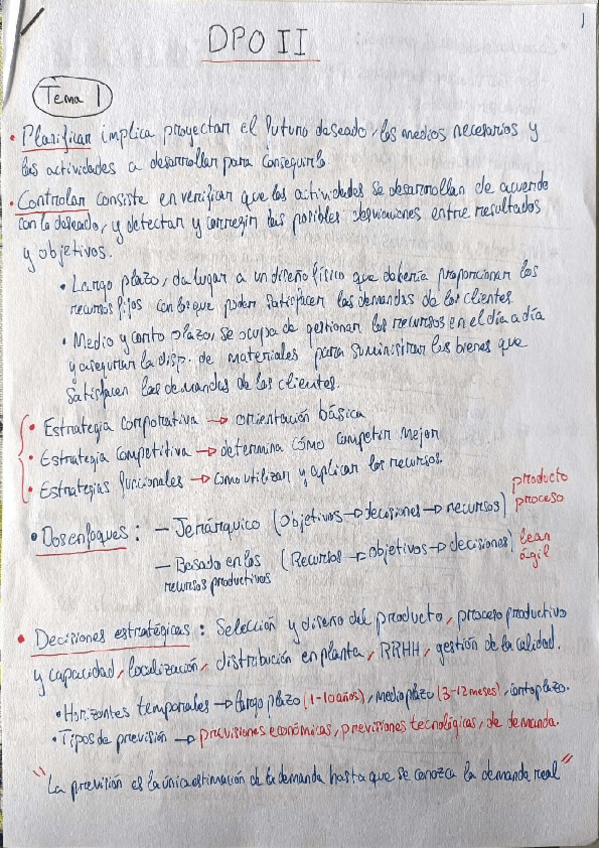 1
DPO II
Tema 1
• Planificar implica proyectar el futuro deseado, los medios necesarios y
las actividades a desarrollar para conseguirlo.
• Controlar consiste en verificar que las actividades se desarrollan de acuerdo
con lo deseado, y detectar y corregir las posibles desviaciones entre resultados
y objetivos.
• Largo plazo, da lugar a un diseño físico que debería proporcionar los
recursos fijos con los que poder satisfacer las demandas de los clientes
• Medio y corto plazo, se ocupa de gestionar los recursos en el día a día
y asegurar la disp. de materiales para suministrar los bienes que
satisfacen las demandas de los clientes.
• Estrategia corporativa → orientación básica
• Estrategia competitiva → determina cómo competir mejor
• Estrategias funcionales → como utilizar y aplicar los recursos.
• Dos enfoques : – Jerárquico (Objetivos → decisiones → recursos) producto
proceso
– Basado en los (Recursos → objetivos → decisiones) lean
recursos productivos ágil
• Decisiones estratégicas : Selección y diseño del producto, proceso productivo
y capacidad, localización, distribución en planta, RRHH, gestión de la calidad.
• Horizontes temporales → largo plazo (1-10 años), medio plazo (3-12 meses), corto plazo.
• Tipos de previsión → previsiones económicas, previsiones tecnológicas, de demanda.
"La previsión es la única estimación de la demanda hasta que se conozca la demanda real"